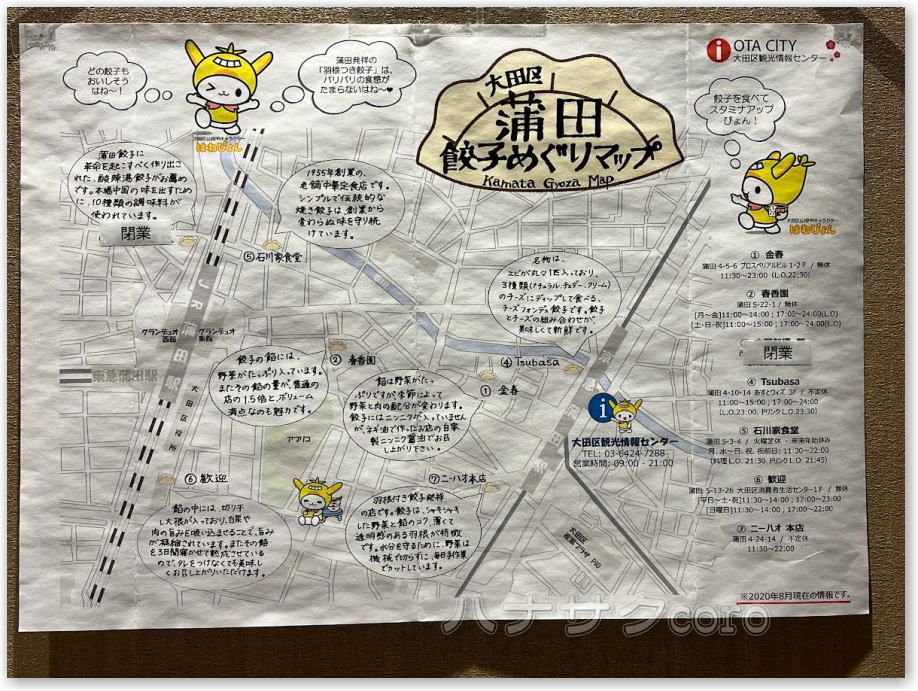 どの餃子も
おいしそう
はね～！
蒲田発祥の
「羽根つき餃子」は、
パリパリの食感が
たまらないはね～♥
大田区公式PRキャラクター
はねぴょん
大田区
蒲田
餃子めぐりマップ
Kamata Gyoza Map
i OTA CITY
大田区観光情報センター
餃子を食べて
スタミナアップ
ぴょん！
大田区公式PRキャラクター
はねぴょん
蒲田餃子に
革命を起こすべく作り出さ
れた、酸辣湯餃子がお薦め
です。本場中国の味を出すために、
10種類の調味料が
使われています。
閉業
1955年創業の、
老舗中華定食店です。
シンプルで伝統的な
焼き餃子は、創業から
変わらぬ味を守り続
けています。
⑤石川家食堂
名物は、
エビが丸々1匹入っており
3種類(ナチュラル、チェダー、クリーム)
のチーズにディップして食べる、
チーズフォンデュ餃子です。餃子
とチーズの組み合わせが、
美味しくて新鮮です。
JR蒲田駅
グランデュオ
西館
グランデュオ
東館
東急蒲田駅
大田区役所
餃子の餡には、
野菜がたっぷり入っています。
またその餡の量が、普通の
店の1.5倍と、ボリューム
満点なのも魅力です。
② 春香園
④ Tsubasa
① 金春
餡は野菜がたっ
ぷりですが、季節によって
野菜と肉の配分が変わります。
餃子にはニンニクが入っていません
が、ネギ油で作ったお店の自家
製ニンニク醤油でお召
し上がり下さい。
アプリコ
京急蒲田駅
i
大田区観光情報センター
TEL: 03-6424-7288
営業時間: 09:00 - 21:00
⑥ 歓迎
餡の中には、切り干
し大根が入っており、白菜や
肉の旨みを吸い込ませることで、旨み
が凝縮されています。またその餡
を3日間寝かせて熟成させている
ので、タレをつけなくても美味し
くお召し上がりいただけます。
⑦ニーハオ本店
羽根付き餃子発祥
の店です。餃子は、シャキシャキ
した野菜と餡のコク、薄くて
透明感のある羽根が特徴
です。水分を守るために、野菜は
機械で切らずに、毎日手作業
でカットしています。
大田区
産業プラザ PiO
① 金春
蒲田 4-5-6 プロスペリアルビル 1・2 F / 無休
11:30～23:00 (L.O.22:30)
② 春香園
蒲田 5-22-1 / 無休
[月～金]11:00～14:00 ; 17:00～24:00(L.O)
[土・日・祝]11:00～15:00 ; 17:00～24:00(L.O)
閉業
④ Tsubasa
蒲田 4-10-14 あすとウィズ 3F / 不定休
11:00～15:00 ; 17:00～24:00
(L.O.23:00、ドリンク L.O.23:30)
⑤ 石川家食堂
蒲田 5-3-4 / 火曜定休 ・ 年末年始休み
月、水～日、祝、祝前日: 11:30～22:00
(料理 L.O. 21:30 ドリンク L.O. 21:45)
⑥ 歓迎
蒲田 5-13-26 大田区消費者生活センター1F / 無休
[平日～土・祝]11:30～14:00 ; 17:00～23:00
[日曜日]11:30～14:00 ; 17:00～22:00
⑦ ニーハオ 本店
蒲田 4-24-14 / 不定休
11:30～22:00
※2020年8月現在の情報です。
ハナサクcoro